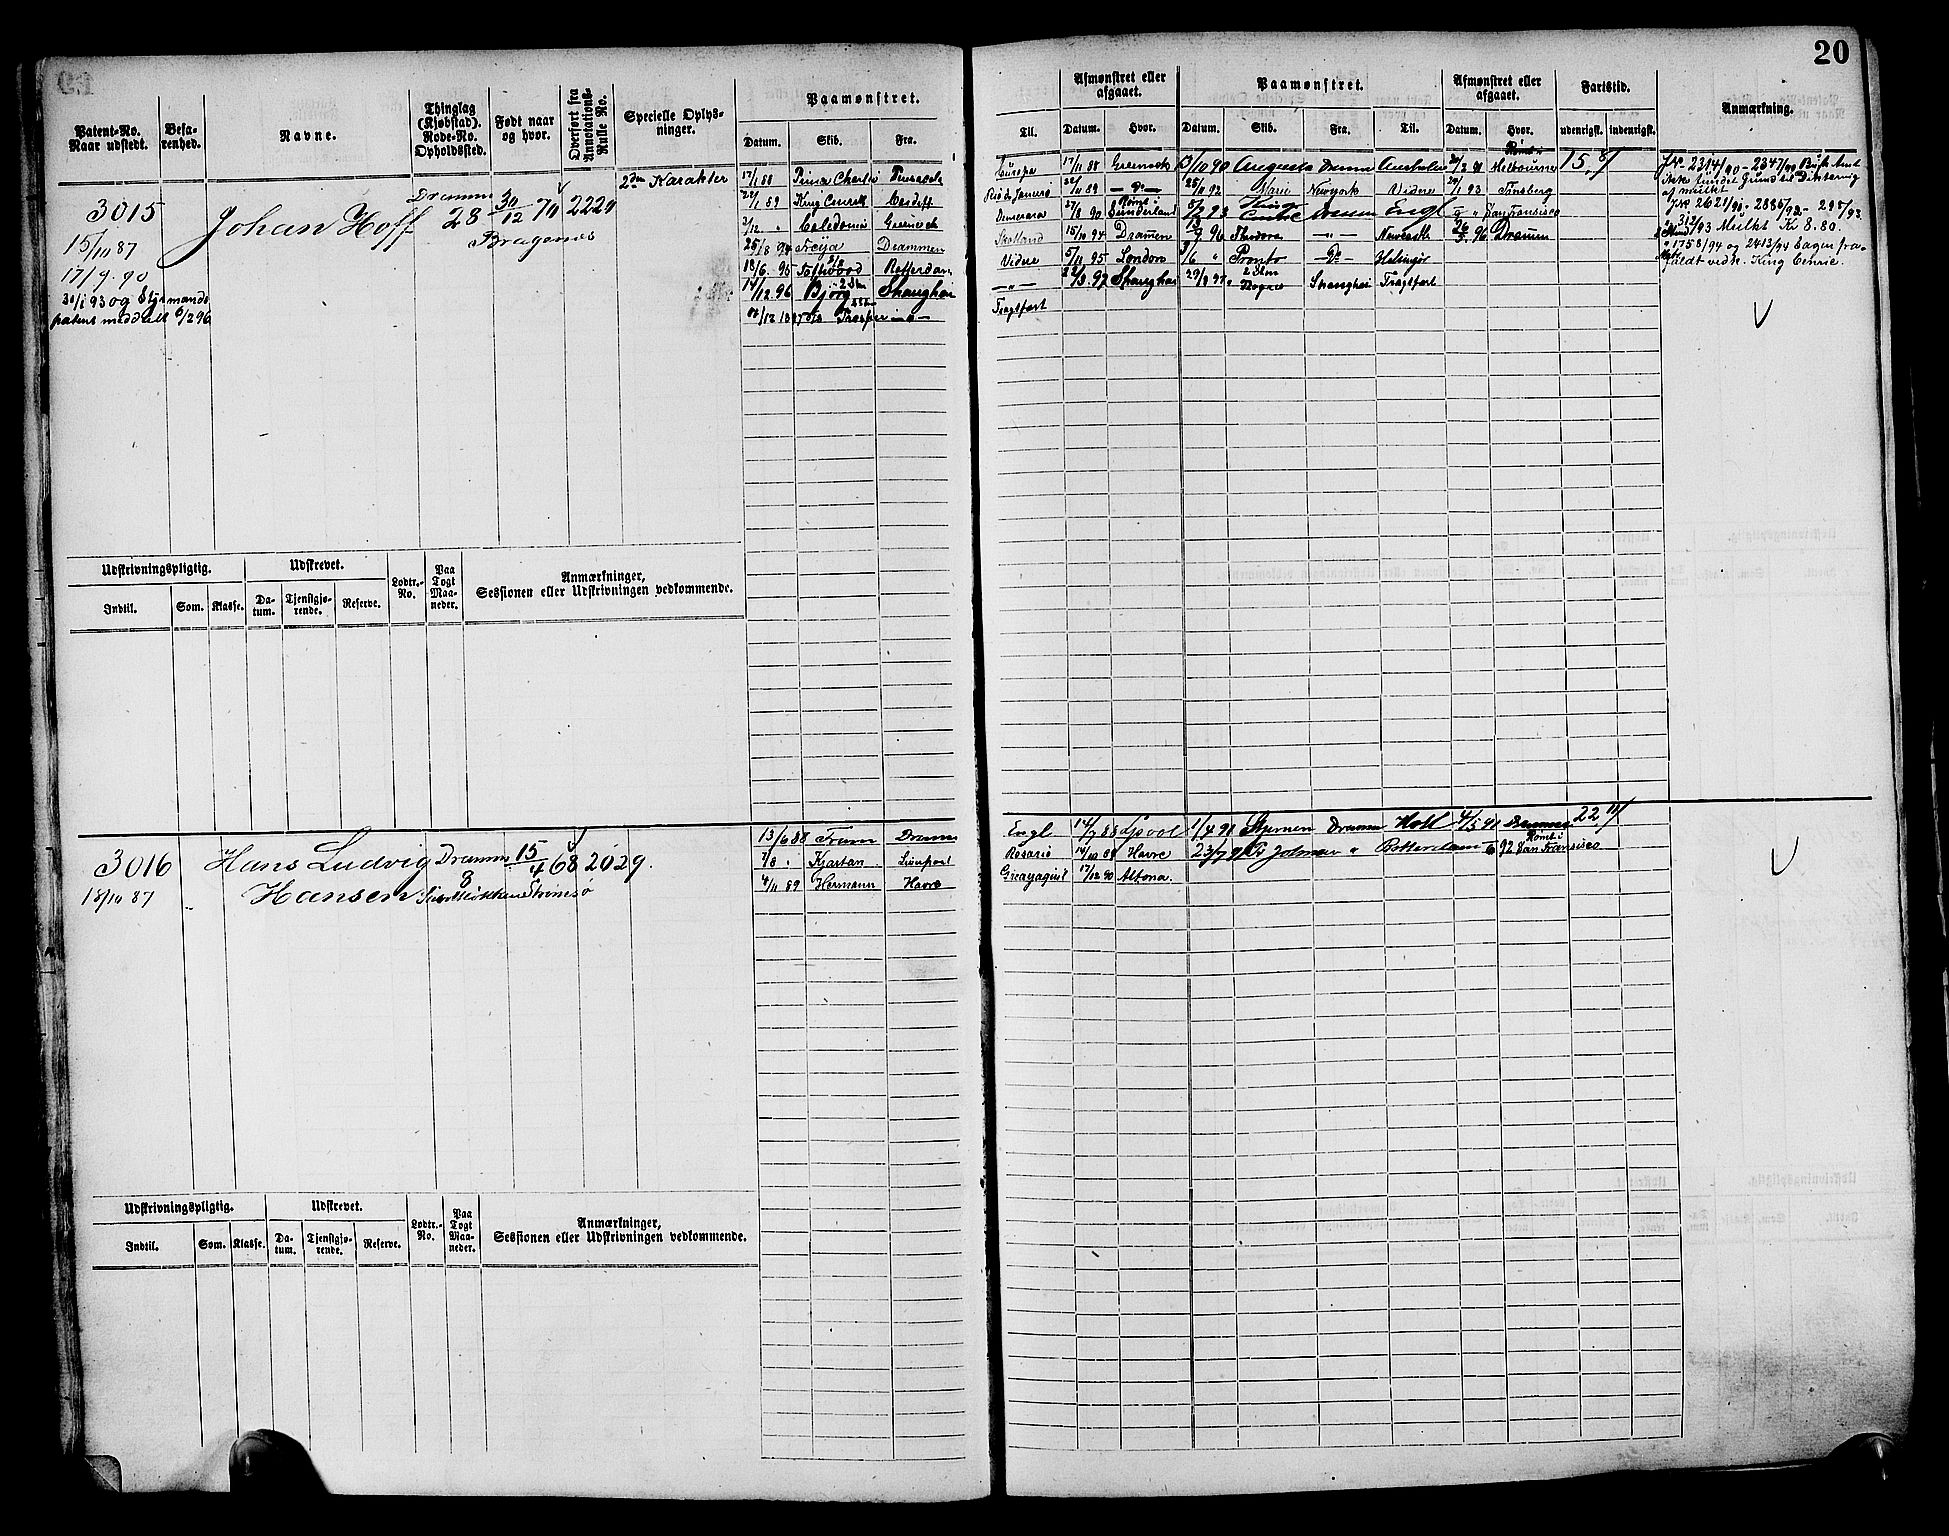 20
Patent-No. Naar udstedt.
Befarenhed.
Navne.
Thinglag (Kjøbstad). Rode-No. Opholdssted.
Født naar og hvor.
Overført fra Annotations-Rulle No.
Specielle Oplysninger.
Paamønstret.
Datum. Skib. Fra.
Til.
Afmønstret eller afgaaet.
Datum. Hvor.
Paamønstret.
Datum. Skib. Fra. Til.
Afmønstret eller afgaaet.
Datum. Hvor.
Fartstid.
udenrigst. indenrigst.
Anmærkning.
3015
15/10 87
17/9. 90
30/1 93 og Styrmands
patent meddelt 6/2 96
Johan Hoff
Dramm
28
30/12 70
Bragenes
2220
2den Karakter
17/1 88 Prince Charlie Pensacola
Europa 17/11 88 Greenock
22/1 89 Cardiff
Rio de Janeiro
Caledonia Greenock
Demerara 27/8 90 Rømt i Sunderland
25/8 94 Freya Drammen
Skotland 15/10 94 Dramen
18/6. 95 Rotterdam
Videre 5/11 95 London
14/12. 96 Bjørg 2 Stm Shanghai
—„— 22/3. 97 Shanghai
Prosper —„—
Fragtfart
13/10 90 Augusta Dramm Australien Rømt i Melbourne
25/10 92 Marie Newyork Videre 29/1 93 Tønsberg
5/2 93 King Cenric Dramm Engl San Fransisco
Theodora —„— Newcastle 26/5. 96 Dramen
Pronto Do Helsingør
29/3 97 2 Stm Shanghai Fragtfart
15, 8/
JNo 2314/90 - 2347/90 Busk. Amt
ikke fundet Grund til Diktering
af mulkt
JNo 2621/92 - 2886/92 - 295/93.
312/93 Mulkt Kr 8.80.
1758/94 og 2413/94 Sagen frafaldt vedk. King Cenric.
Udskrivningspligtig.
Indtil. Rom. Klasse.
Udskrevet.
Datum. Tjenstgjørende. Reserve.
Lodtr.-No.
Paa Togt Maaneder.
Anmærkninger, Sessionen eller Udskrivningen vedkommende.
3016
18/10 87
Hans Ludvig
Hansen
Dramm
8
15/4 68
Strømsø
2029.
13/6 88 Dramm
Engl 14/7 88 Lpool
7/8 „ Kjartan Liverpool
Rosario 14/10 88 Havre
4/11 89 Hermann Havre
Guayaquil 17/12 90 Altona.
1/4 91 Stjernen Dramm Holl 4/5 91 Dramm
Rotterdam 92 Rømt i San Fransisco
22 11/
Udskrivningspligtig.
Indtil. Rom. Klasse.
Udskrevet.
Datum. Tjenstgjørende. Reserve.
Lodtr.-No.
Paa Togt Maaneder.
Anmærkninger, Sessionen eller Udskrivningen vedkommende.